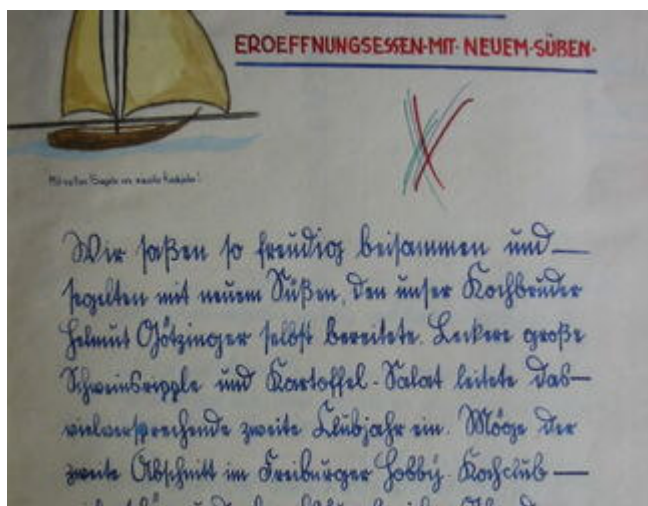 EROEFFNUNGSESSEN·MIT·NEUEM·SÜßEN·
Mit vollen Segeln ins zweite Kochjahr!
Wir saßen so freudig beisammen und—
segelten mit neuem Süßen, den unser Kochbruder
Helmut Götzinger selbst bereitete. Leckere große
Schweinsripple und Kartoffel-Salat leitete das—
vielversprechende zweite Clubjahr ein. Möge der
zweite Abschnitt im Freiburger Hobby-Kochclub—